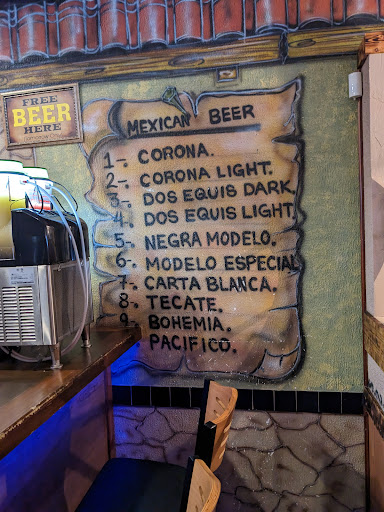 FREE
BEER
HERE
MEXICAN BEER
1-. CORONA.
2-. CORONA LIGHT.
3-. DOS EQUIS DARK.
4-. DOS EQUIS LIGHT.
5-. NEGRA MODELO.
6-. MODELO ESPECIAL
7-. CARTA BLANCA.
8-. TECATE.
9-. BOHEMIA.
PACIFICO.